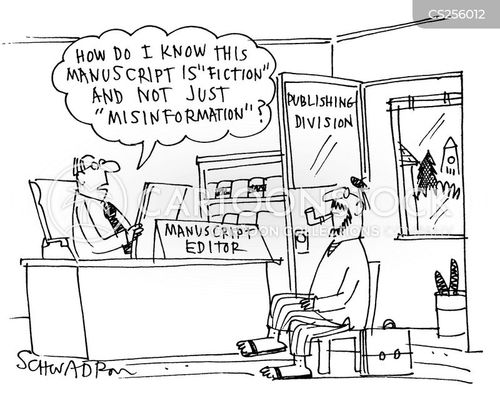 CS256012
HOW DO I KNOW THIS
MANUSCRIPT IS "FICTION"
AND NOT JUST
"MISINFORMATION"?
PUBLISHING
DIVISION
MANUSCRIPT
EDITOR
CARTOONSTOCK
SCHWADRON